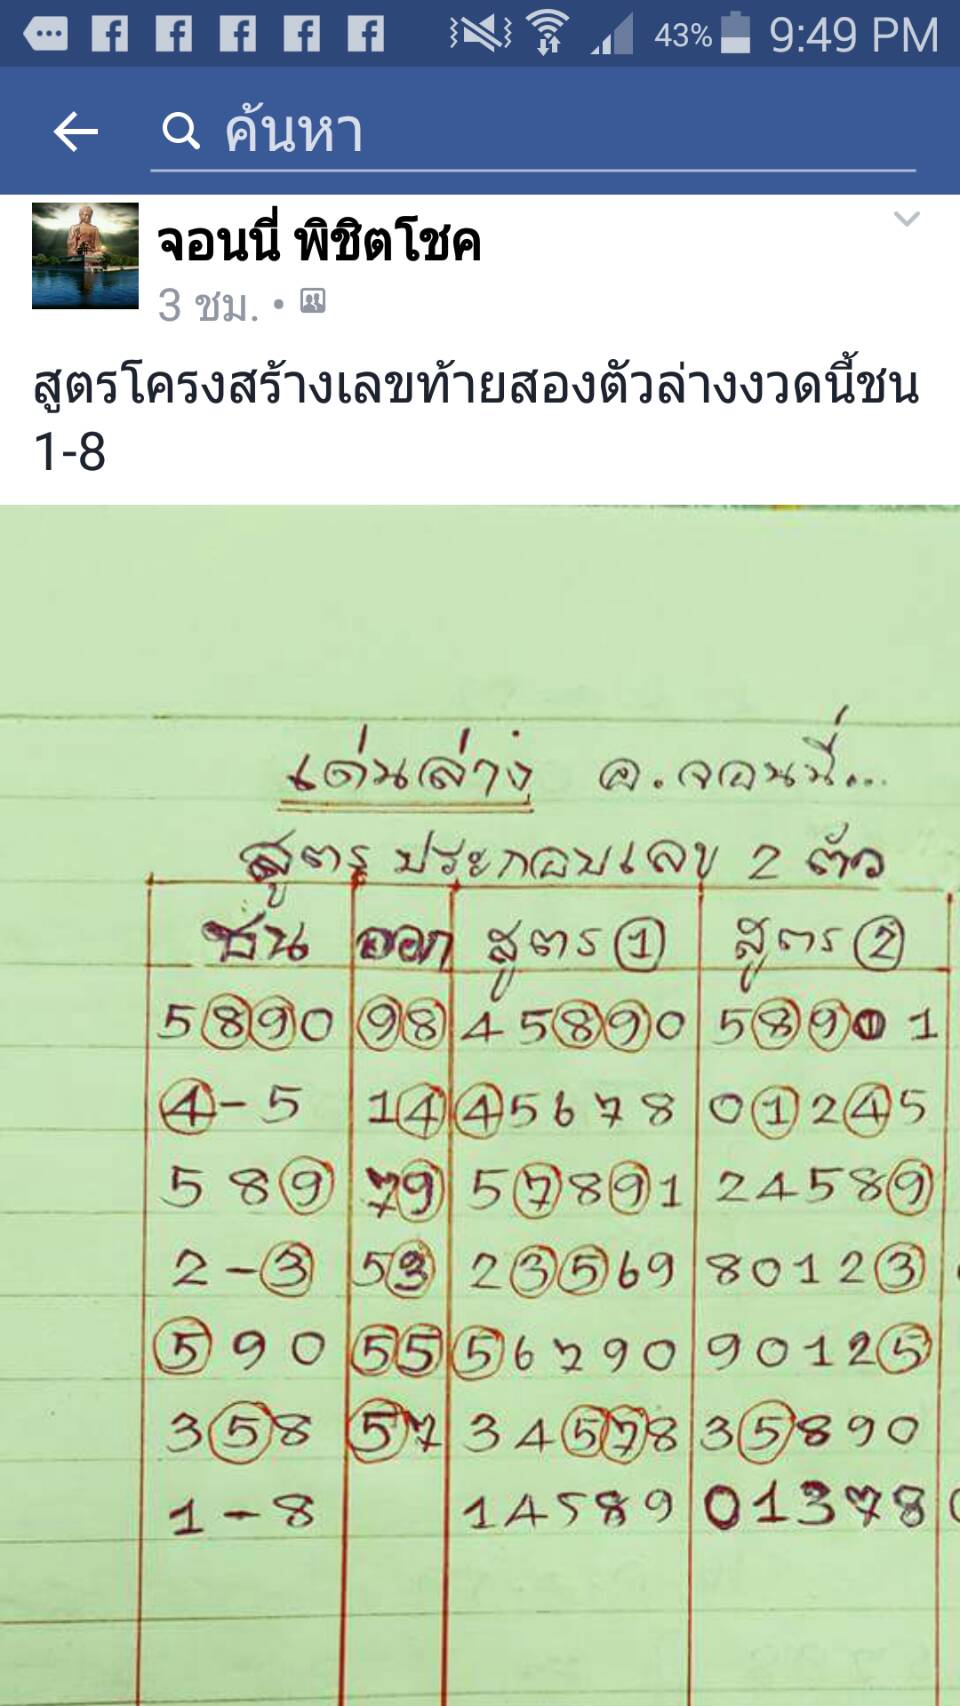 43% 9:49 PM
ค้นหา
จอนนี่ พิชิตโชค
3 ชม. •
สูตรโครงสร้างเลขท้ายสองตัวล่างงวดนี้ชน
1-8
เด่นล่าง อ.จอนนี่...
สูตร ประกอบเลข 2 ตัว
ชน ออก สูตร 1 สูตร 2
5890 98 45890 58901
4-5 14 45678 01245
589 79 57891 24589
2-3 53 23569 80123
590 55 56790 90125
358 57 34578 35890
1-8 14589 01378